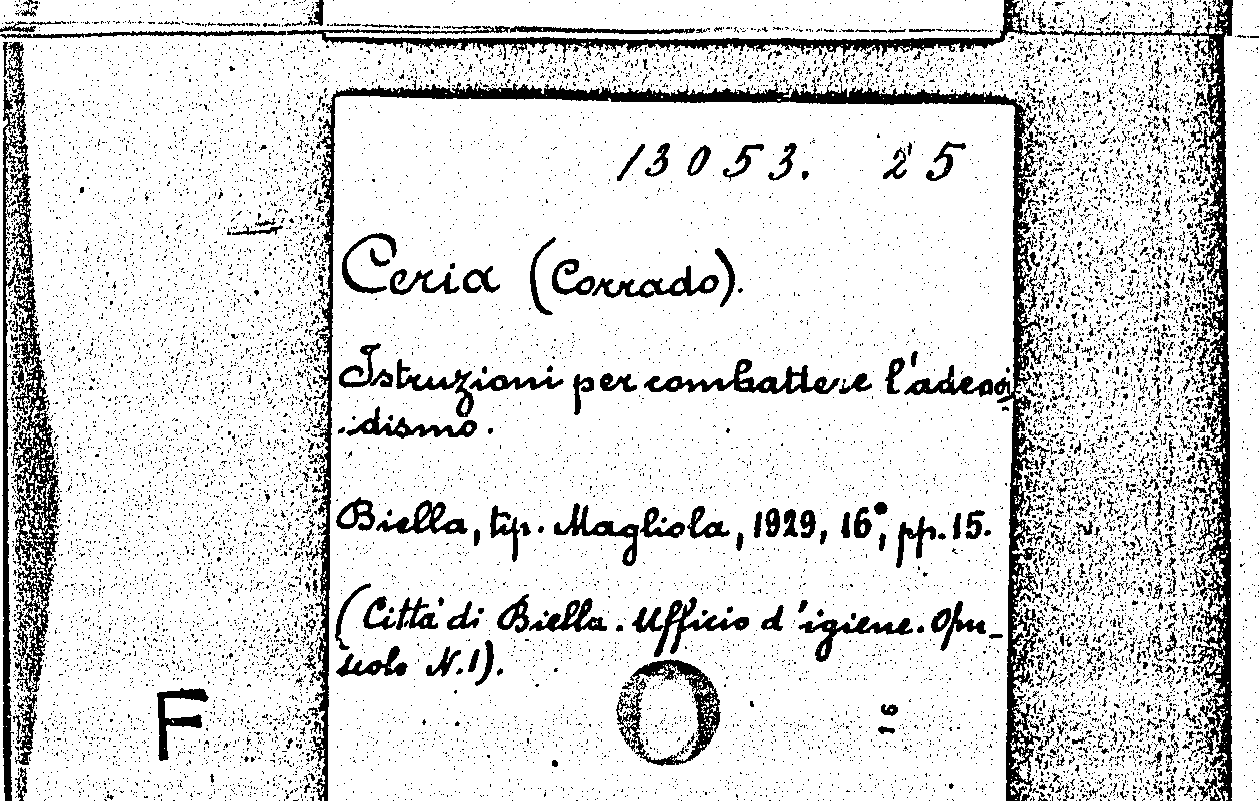 13053. 25
Ceria (Corrado).
Istruzioni per combattere l'adenoi
dismo.
Biella, tip. Magliola, 1929, 16°, pp. 15.
(Città di Biella. Ufficio d'igiene. Opu-
scolo N.1).
F
16